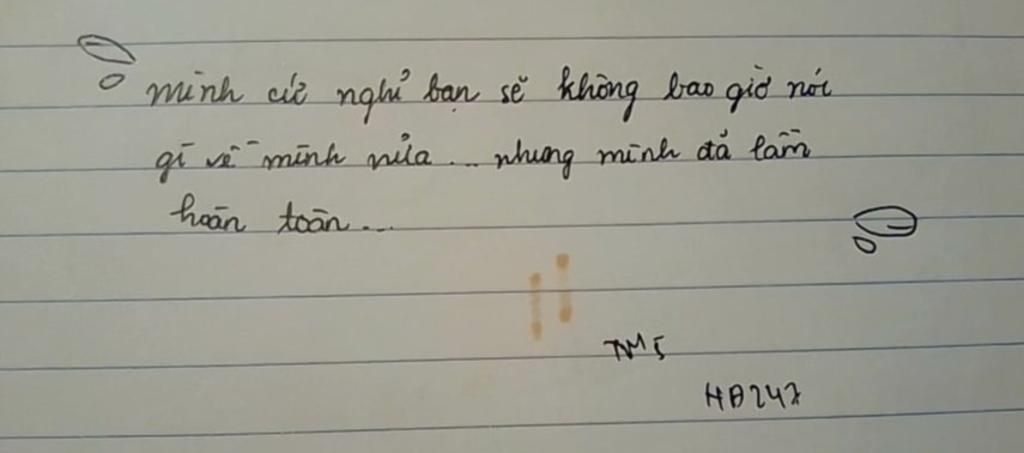 mình cứ nghỉ bạn sẽ không bao giờ nói
gì về mình nửa... nhưng mình đả lầm
hoàn toàn...
TM5
HĐ247